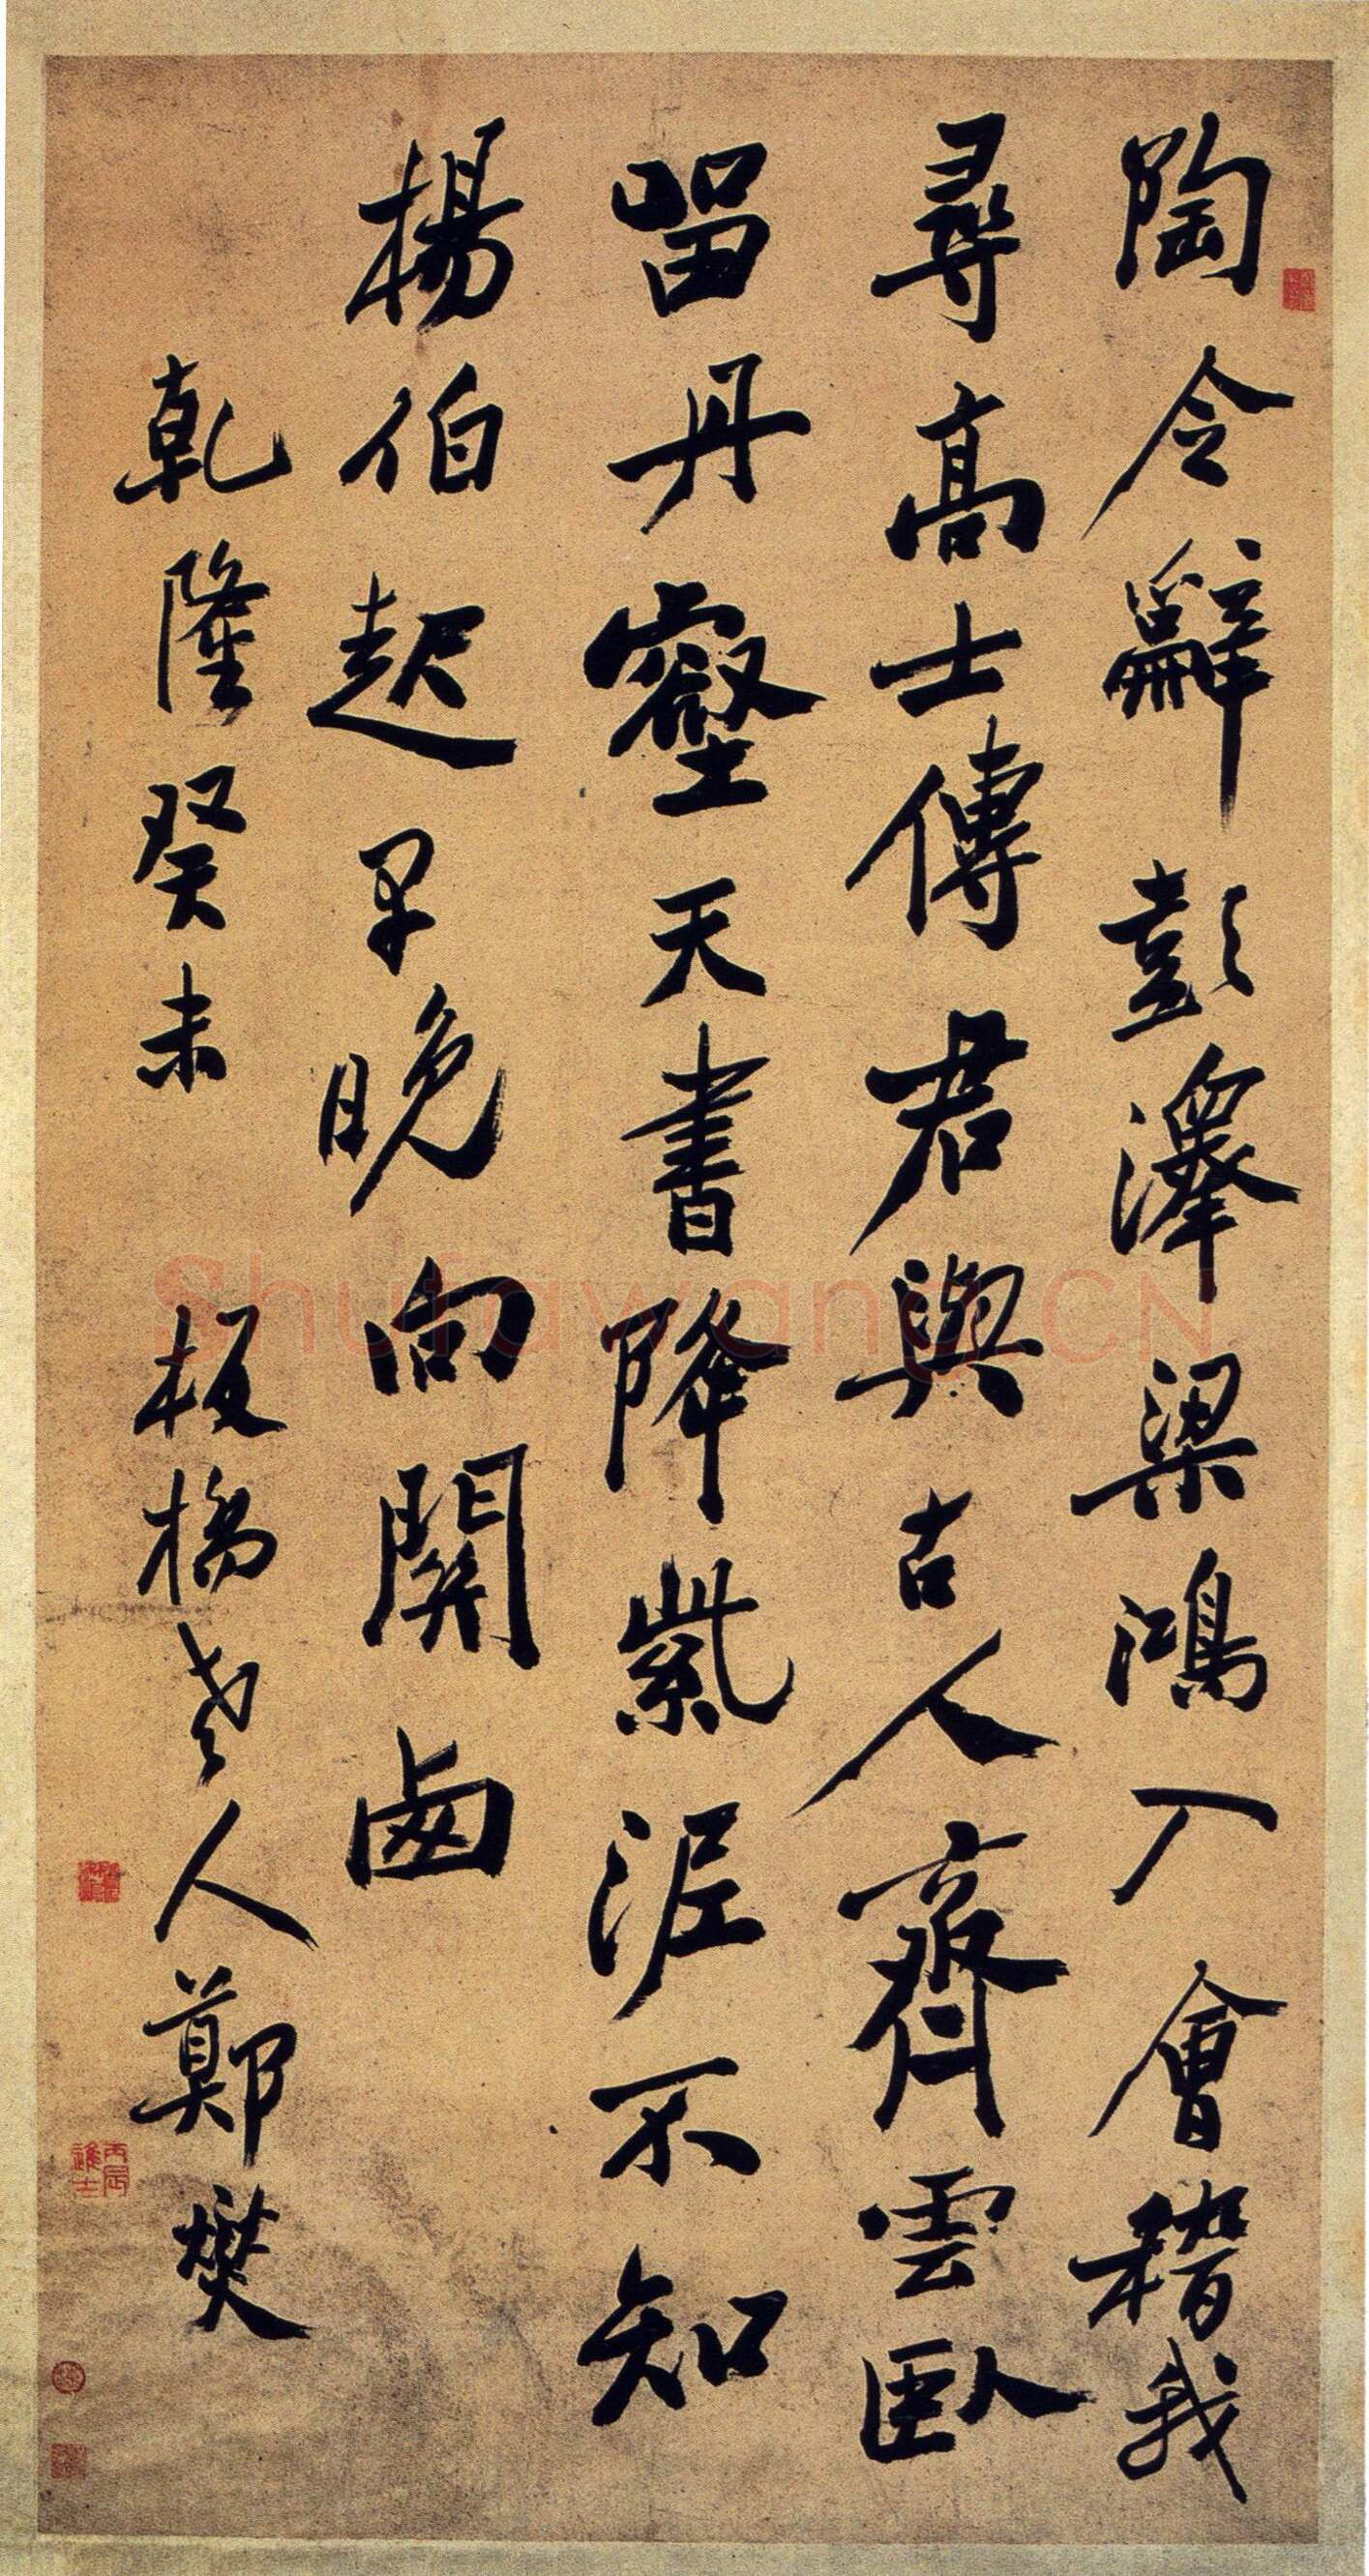 陶令辭彭澤梁鴻入會稽我
尋高士傳君與古人齊雲臥
留丹壑天書降紫泥不知
楊伯起早晚向關卥
乾隆癸未 板橋老人鄭燮
丙辰進士
Shufawang.CN